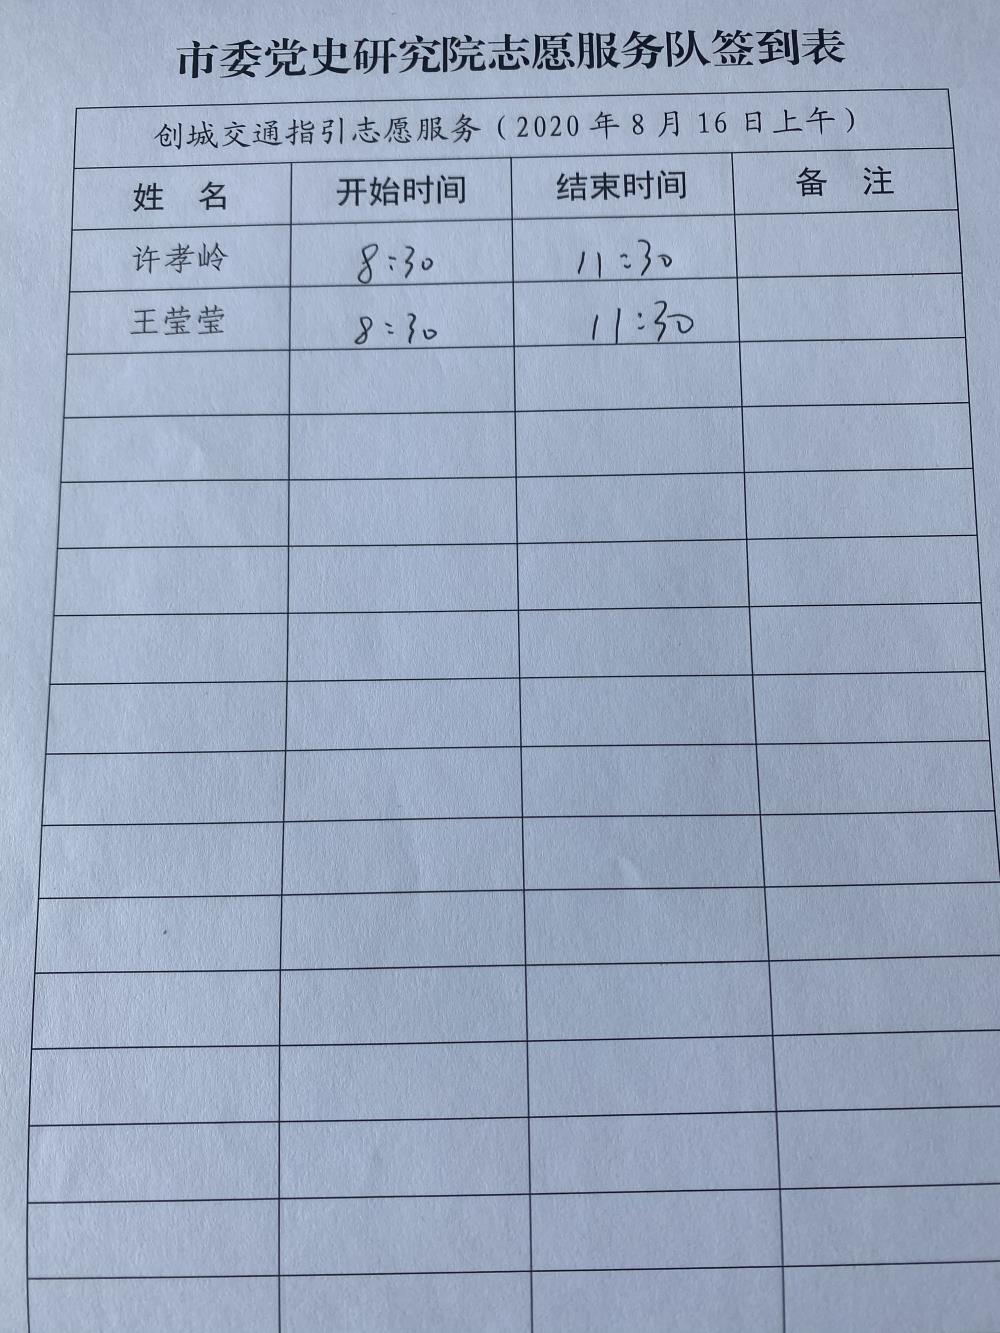 市委党史研究院志愿服务队签到表
创城交通指引志愿服务（2020年8月16日上午）
姓 名 开始时间 结束时间 备 注
许孝岭 8:30 11:30
王莹莹 8:30 11:30